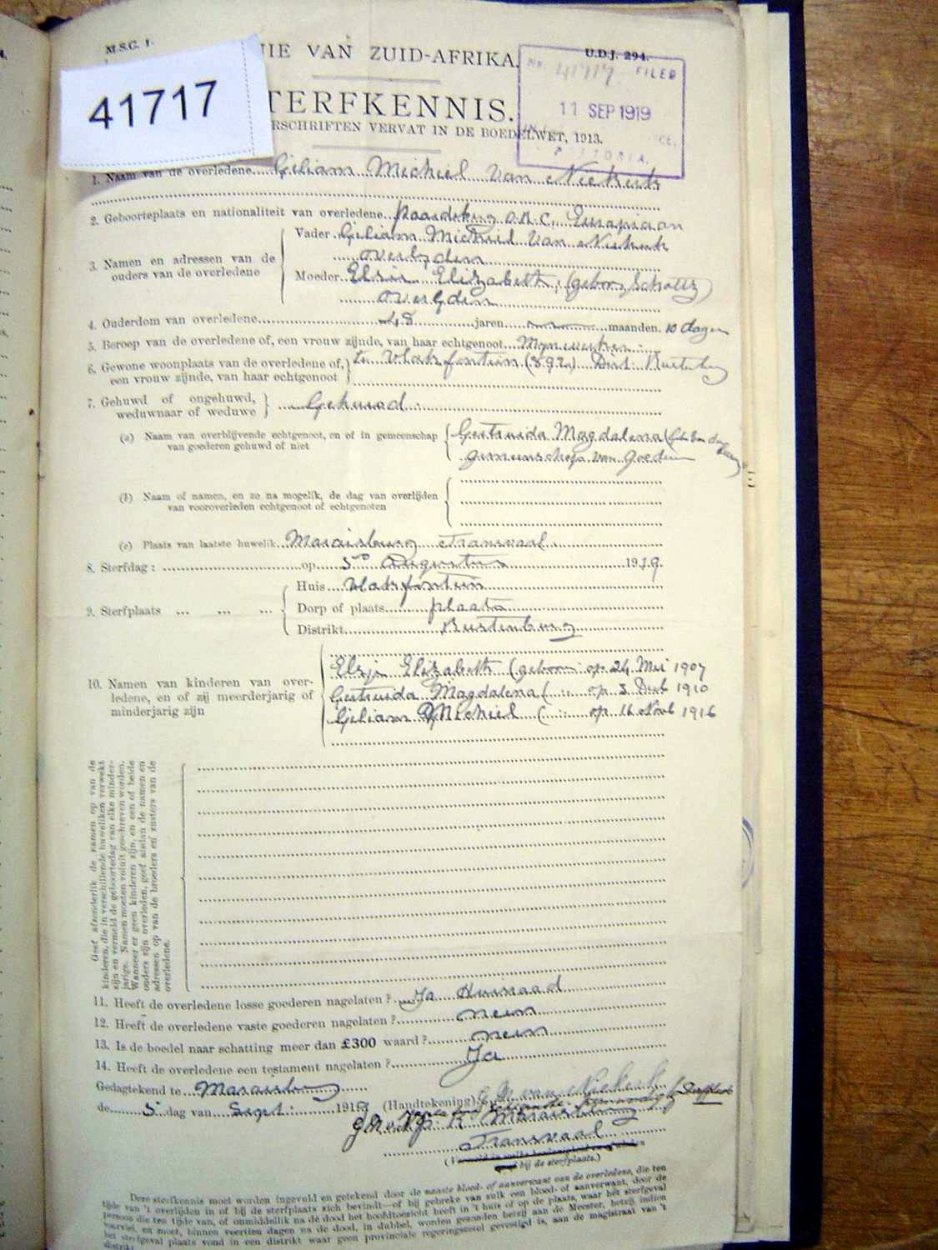 M.S.C. 1.
U.D.J. 294.
NIE VAN ZUID-AFRIKA.
41717
No. 41717 FILED
11 SEP 1919
TERFKENNIS.
RSCHRIFTEN VERVAT IN DE BOEDELWET, 1913.
1. Naam van de overledene Giliam Michiel Van Niekerk
2. Geboorteplaats en nationaliteit van overledene Paardekraal O.R.C. Europiaan
3. Namen en adressen van de ouders van de overledene
Vader Giliam Michiel Van Niekerk
overleden
Moeder Elsie Elizabeth (geboren Scholtz)
overleden
4. Ouderdom van overledene 48 jaren maanden. 10 dagen
5. Beroep van de overledene of, een vrouw zijnde, van haar echtgenoot Mynwerker
6. Gewone woonplaats van de overledene of, een vrouw zijnde, van haar echtgenoot
te Vlakfontein (892) Dist. Rustenburg
7. Gehuwd of ongehuwd, weduwnaar of weduwe Gehuwd
(a) Naam van overblijvende echtgenoot, en of in gemeenschap van goederen gehuwd of niet
Gertruida Magdalena
gemeenschap van goederen
(b) Naam of namen, en zo na mogelik, de dag van overlijden van vooroverleden echtgenoot of echtgenoten
(c) Plaats van laatste huwelik Maraisburg Transvaal
8. Sterfdag : op 5de Augustus 1919.
9. Sterfplaats ... ... ...
Huis Vlakfontein
Dorp of plaats plaats
Distrikt Rustenburg
10. Namen van kinderen van overledene, en of zij meerderjarig of minderjarig zijn
Elsje Elizabeth (geboren op 24 Mei 1907
Gertruida Magdalena ( " op 3 Des 1910
Giliam Michiel ( " op 16 Nov 1916
Geef afzonderlik de namen op van de
kinderen, die in verschillende huweliken verwekt
zijn en vermeld de geboortedag van elke minder-
jarige. Namen moeten voluit geschreven worden.
Wanneer er geen kinderen zijn, en een of beide
ouders zijn overleden, geef alsdan de namen en
adressen op van de broeders en zusters van de
overledene.
11. Heeft de overledene losse goederen nagelaten ? Ja Huisraad
12. Heeft de overledene vaste goederen nagelaten ? neen
13. Is de boedel naar schatting meer dan £300 waard ? neen
14. Heeft de overledene een testament nagelaten ? Ja
Gedagtekend te Maraisburg
de 5 dag van Sept: 1919 (Handtekening) G M van Niekerk
Maraisburg
Transvaal
bij de sterfplaats.)
Deze sterfkennis moet worden ingevuld en getekend door de naaste bloed- of aanverwant van de overledene, die ten
tijde van 't overlijden in of bij de sterfplaats zich bevindt—of bij gebreke van zulk een bloed- of aanverwant, door de
persoon die ten tijde van, of onmiddellik na de dood het hoofdtoezicht heeft in 't huis of op de plaats, waar het sterfgeval
voorviel, en moet, binnen veertien dagen na de dood, in dubbel, worden gezonden hetzij aan de Meester, hetzij indien
het sterfgeval plaats vond in een distrikt waar geen provinciale regeringszetel gevestigd is, aan de magistraat van 't
distrikt.